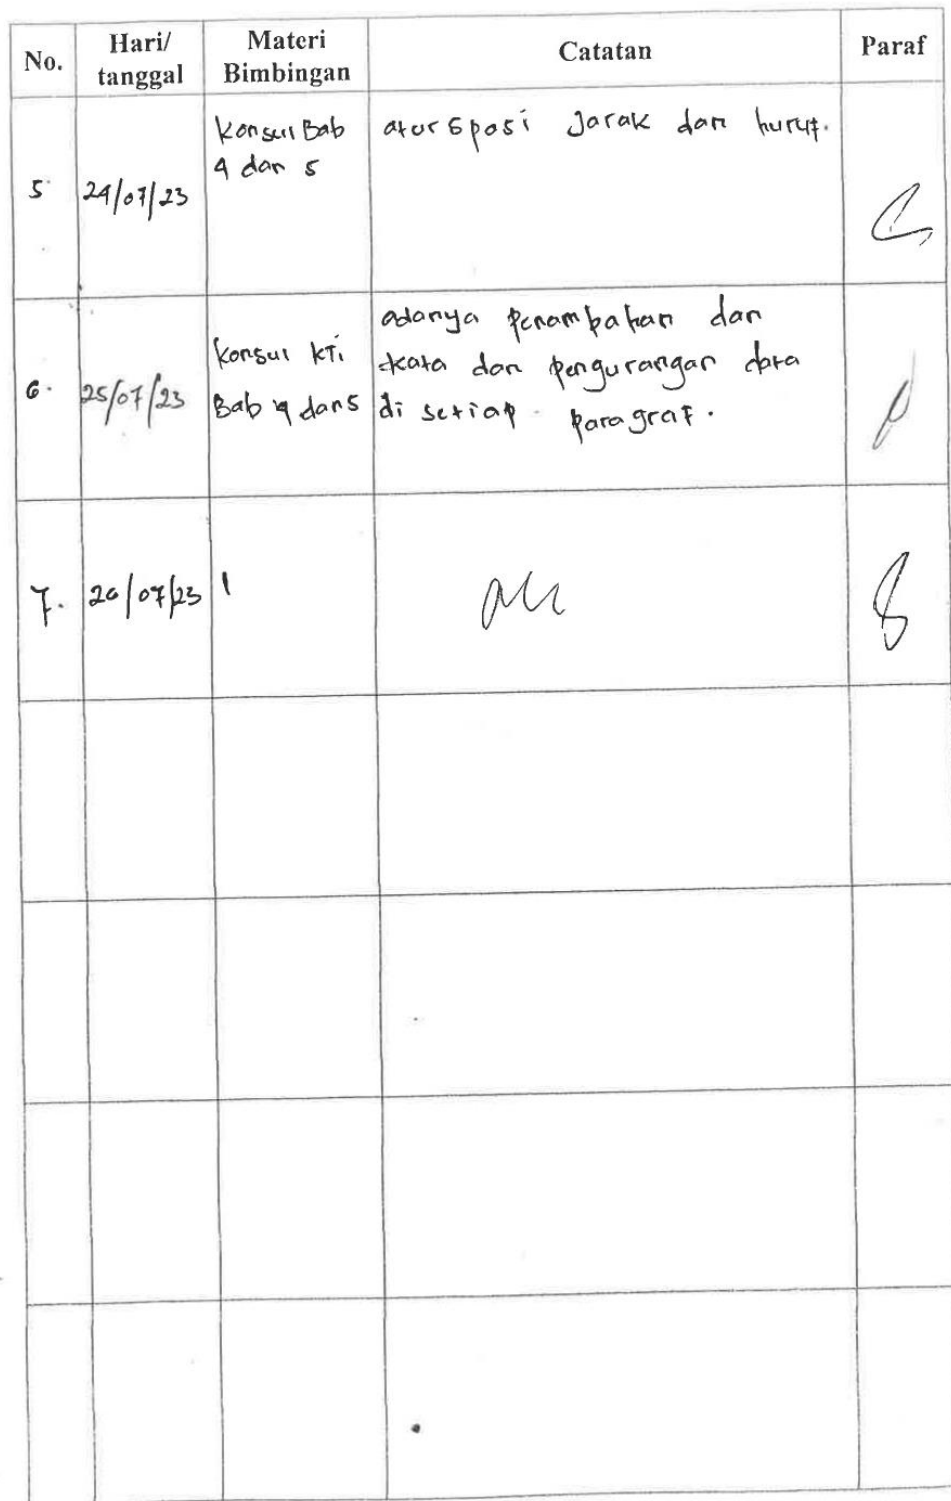 No. Hari/ tanggal Materi Bimbingan Catatan Paraf
5. 24/07/23 Konsul Bab 4 dan 5 atur spasi Jarak dan huruf.
6. 25/07/23 Konsul KTi Bab 4 dan 5 adanya penambahan dan
kata dan pengurangan data
di setiap paragraf.
7. 26/07/23